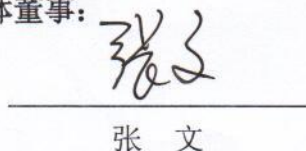 体董事：
张文
张 文